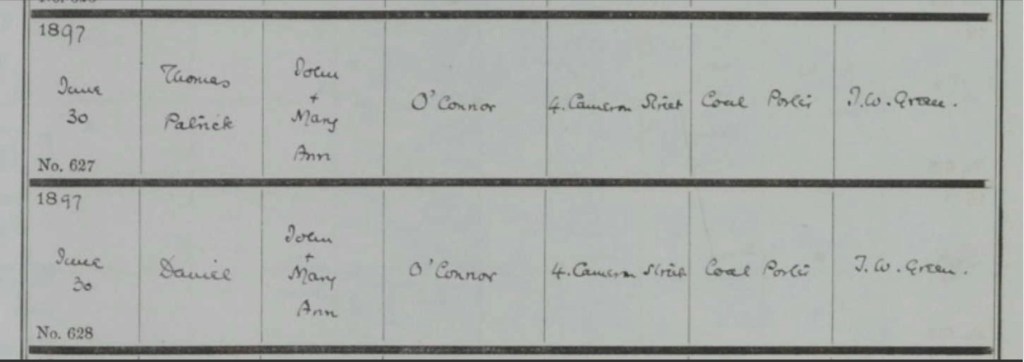 1897
June 30
Thomas Patrick
John + Mary Ann
O'Connor
4. Cameron Street
Coal Porter
J.W. Green.
No. 627
1897
June 30
Daniel
John + Mary Ann
O'Connor
4. Cameron Street
Coal Porter
J.W. Green.
No. 628